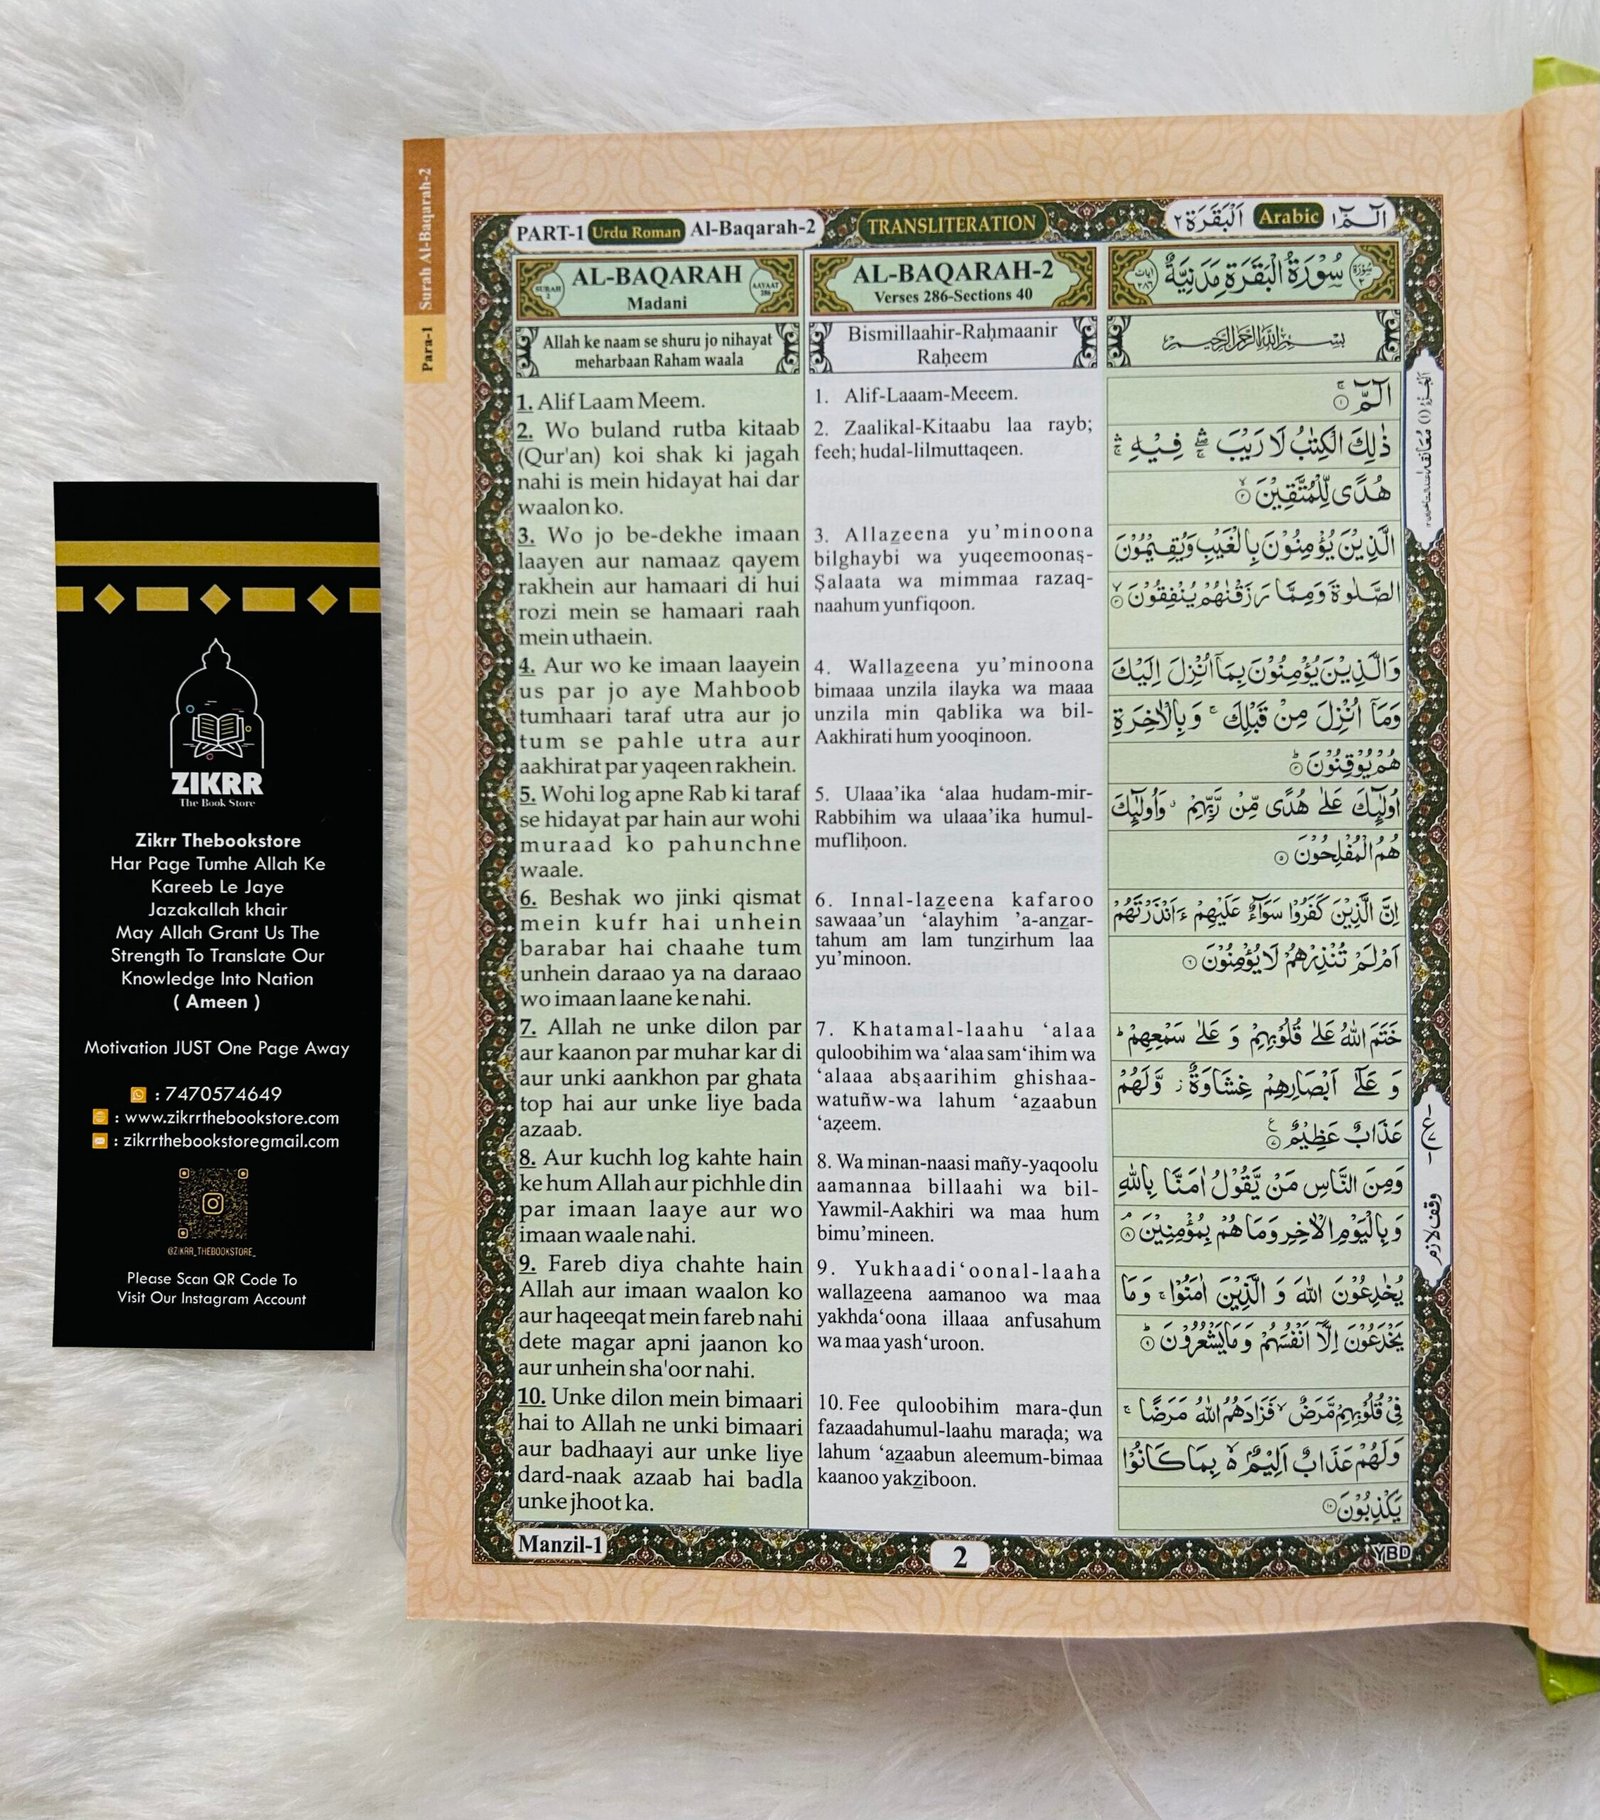 ZIKRR
The Book Store
Zikrr Thebookstore
Har Page Tumhe Allah Ke
Kareeb Le Jaye
Jazakallah khair
May Allah Grant Us The
Strength To Translate Our
Knowledge Into Nation
( Ameen )
Motivation JUST One Page Away
: 7470574649
: www.zikrrthebookstore.com
: zikrrthebookstoregmail.com
@ZIKRR_THEBOOKSTORE_
Please Scan QR Code To
Visit Our Instagram Account
Surah Al-Baqarah-2
Para-1
PART-1 Urdu Roman Al-Baqarah-2
TRANSLITERATION
الٓمّٓ ١ Arabic اَلْبَقَرَة ٢
SURAH 2
AL-BAQARAH
Madani
AAYAAT 286
Allah ke naam se shuru jo nihayat
meharbaan Raham waala
1. Alif Laam Meem.
2. Wo buland rutba kitaab
(Qur'an) koi shak ki jagah
nahi is mein hidayat hai dar
waalon ko.
3. Wo jo be-dekhe imaan
laayen aur namaaz qayem
rakhein aur hamaari di hui
rozi mein se hamaari raah
mein uthaein.
4. Aur wo ke imaan laayein
us par jo aye Mahboob
tumhaari taraf utra aur jo
tum se pahle utra aur
aakhirat par yaqeen rakhein.
5. Wohi log apne Rab ki taraf
se hidayat par hain aur wohi
muraad ko pahunchne
waale.
6. Beshak wo jinki qismat
mein kufr hai unhein
barabar hai chaahe tum
unhein daraao ya na daraao
wo imaan laane ke nahi.
7. Allah ne unke dilon par
aur kaanon par muhar kar di
aur unki aankhon par ghata
top hai aur unke liye bada
azaab.
8. Aur kuchh log kahte hain
ke hum Allah aur pichhle din
par imaan laaye aur wo
imaan waale nahi.
9. Fareb diya chahte hain
Allah aur imaan waalon ko
aur haqeeqat mein fareb nahi
dete magar apni jaanon ko
aur unhein sha'oor nahi.
10. Unke dilon mein bimaari
hai to Allah ne unki bimaari
aur badhaayi aur unke liye
dard-naak azaab hai badla
unke jhoot ka.
AL-BAQARAH-2
Verses 286-Sections 40
Bismillaahir-Raḥmaanir
Raḥeem
1. Alif-Laaam-Meeem.
2. Zaalikal-Kitaabu laa rayb;
feeh; hudal-lilmuttaqeen.
3. Allazeena yu’minoona
bilghaybi wa yuqeemoonaṣ-
Ṣalaata wa mimmaa razaq-
naahum yunfiqoon.
4. Wallazeena yu’minoona
bimaaa unzila ilayka wa maaa
unzila min qablika wa bil-
Aakhirati hum yooqinoon.
5. Ulaaa’ika ‘alaa hudam-mir-
Rabbihim wa ulaaa’ika humul-
mufliḥoon.
6. Innal-lazeena kafaroo
sawaaa’un ‘alayhim ’a-anzar-
tahum am lam tunzirhum laa
yu’minoon.
7. Khatamal-laahu ‘alaa
quloobihim wa ‘alaa sam‘ihim wa
‘alaaa abṣaarihim ghishaa-
watuñw-wa lahum ‘azaabun
‘aẓeem.
8. Wa minan-naasi mañy-yaqoolu
aamannaa billaahi wa bil-
Yawmil-Aakhiri wa maa hum
bimu’mineen.
9. Yukhaadi‘oonal-laaha
wallazeena aamanoo wa maa
yakhda‘oona illaaa anfusahum
wa maa yash‘uroon.
10. Fee quloobihim mara-ḍun
fazaadahumul-laahu maraḍa; wa
lahum ‘azaabun aleemum-bimaa
kaanoo yakziboon.
سُوْرَةُ الْبَقَرَةِ مَدَنِيَّةٌ
بِسْمِ اللّٰهِ الرَّحْمٰنِ الرَّحِيْمِ
الٓمّٓ ۚ ١
ذٰلِكَ الْكِتٰبُ لَا رَيْبَ ۛۚ فِيْهِ ۛۚ
هُدًى لِّلْمُتَّقِيْنَ ۙ ٢
الَّذِيْنَ يُؤْمِنُوْنَ بِالْغَيْبِ وَيُقِيْمُوْنَ
الصَّلٰوةَ وَمِمَّا رَزَقْنٰهُمْ يُنْفِقُوْنَ ۙ ٣
وَالَّذِيْنَ يُؤْمِنُوْنَ بِمَآ اُنْزِلَ اِلَيْكَ
وَمَآ اُنْزِلَ مِنْ قَبْلِكَ ۚ وَبِالْاٰخِرَةِ
هُمْ يُوْقِنُوْنَ ؕ ٤
اُولٰٓئِكَ عَلٰى هُدًى مِّنْ رَّبِّهِمْ ۗ وَاُولٰٓئِكَ
هُمُ الْمُفْلِحُوْنَ ٥
اِنَّ الَّذِيْنَ كَفَرُوْا سَوَآءٌ عَلَيْهِمْ ءَاَنْذَرْتَهُمْ
اَمْ لَمْ تُنْذِرْهُمْ لَا يُؤْمِنُوْنَ ٦
خَتَمَ اللّٰهُ عَلٰى قُلُوْبِهِمْ وَ عَلٰى سَمْعِهِمْ ؕ
وَ عَلٰٓى اَبْصَارِهِمْ غِشَاوَةٌ ز وَّلَهُمْ
عَذَابٌ عَظِيْمٌ ٧
وَمِنَ النَّاسِ مَنْ يَّقُوْلُ اٰمَنَّا بِاللّٰهِ
وَبِالْيَوْمِ الْاٰخِرِ وَمَا هُمْ بِمُؤْمِنِيْنَ ۘ ٨
يُخٰدِعُوْنَ اللّٰهَ وَ الَّذِيْنَ اٰمَنُوْا ۚ وَمَا
يَخْدَعُوْنَ اِلَّآ اَنْفُسَهُمْ وَمَا يَشْعُرُوْنَ ؕ ٩
فِيْ قُلُوْبِهِمْ مَّرَضٌ ۙ فَزَادَهُمُ اللّٰهُ مَرَضًا ۚ
وَلَهُمْ عَذَابٌ اَلِيْمٌ ۙ بِمَا كَانُوْا
يَكْذِبُوْنَ ١٠
وقف لازم
Manzil-1
2
YBD